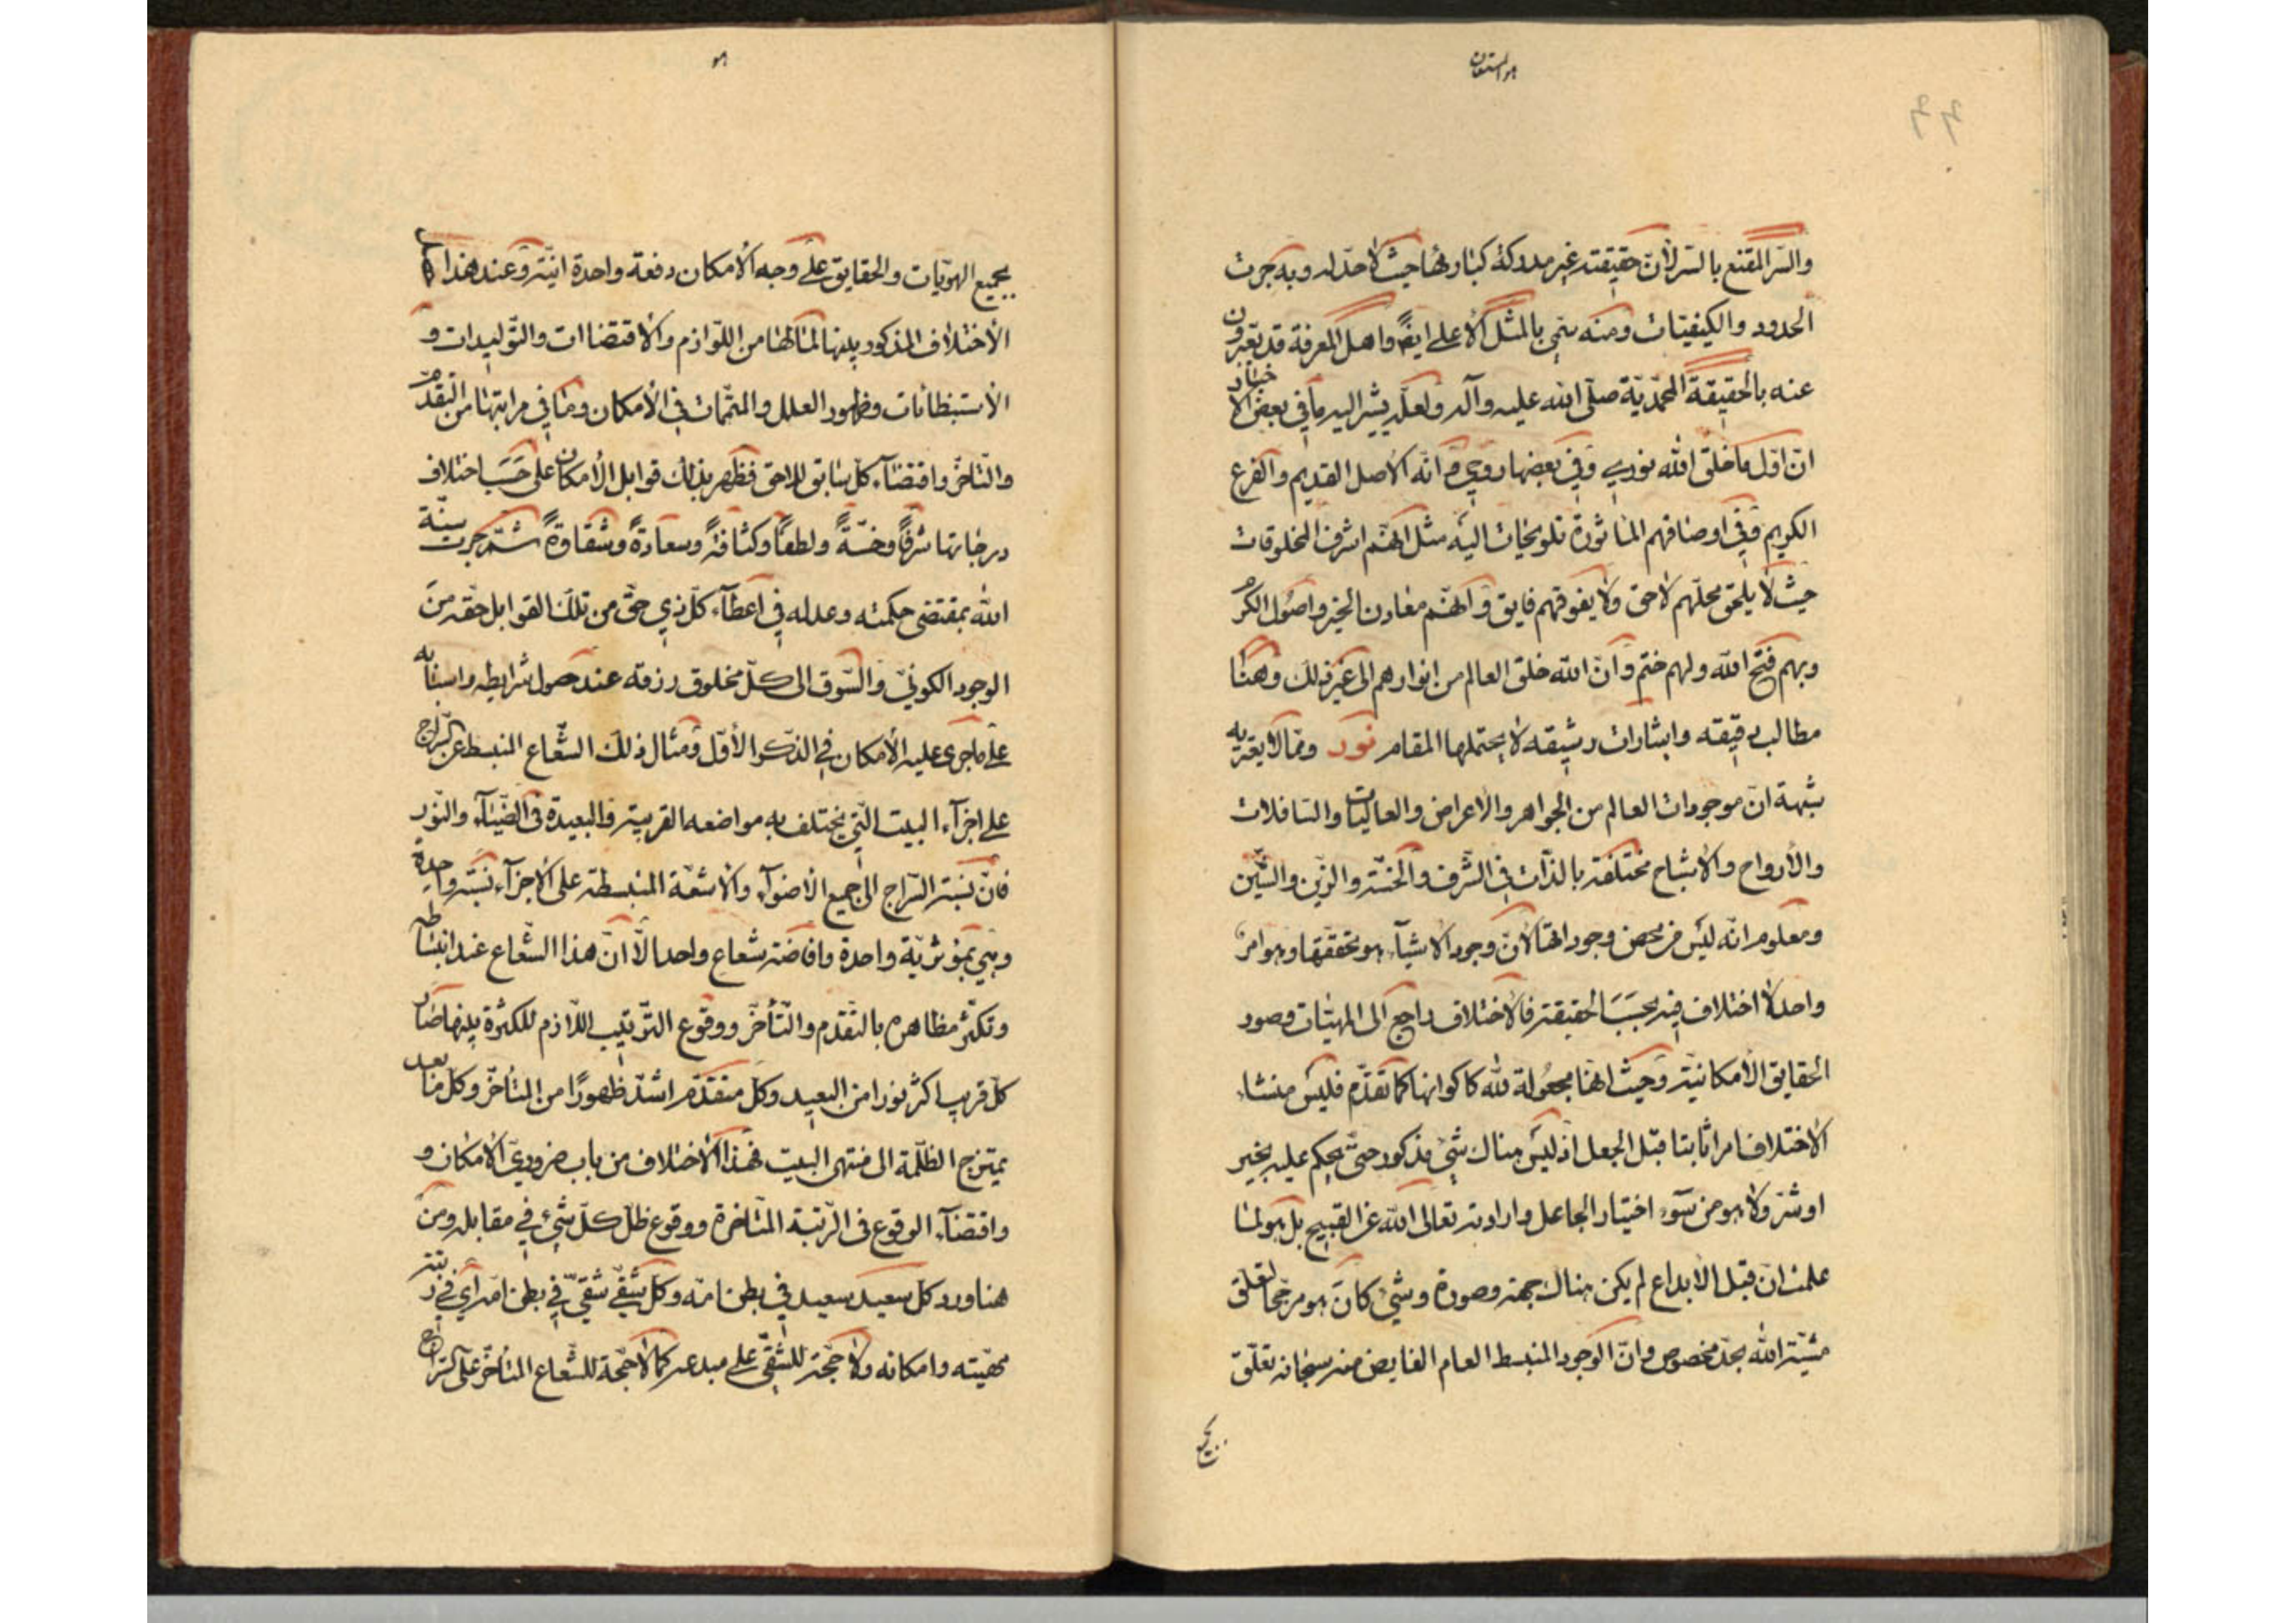 هو المستعان
والسّر المقنع بالسّر لأنّ حقيقته غير مدركة كبارئها حيث لا حدّ له وبه جرت
الحدود والكيفيّات ومنه سمّي بالمثل الأعلى ايضًا واهل المعرفة قد يعبّرون
عنه بالحقيقة المحمّديّة صلّى الله عليه وآله ولعلّه يشير اليه ما في بعض الأخبار
انّ اوّل ما خلق الله نوري وفي بعضها روحي وانّه الاصل القديم والفرع
الكريم وفي اوصافهم المأثورة تلويحات اليه مثل انّهم اشرف المخلوقات
حيث لا يلحق محلّهم لاحق ولا يفوقهم فايق وانّهم معادن الخير واصول الكرم
وبهم فتح الله ولهم ختم وانّ الله خلق العالم من انوارهم الى غير ذلك وهنا
مطالب دقيقه واشارات رشيقه لا يحتملها المقام نور وممّا لا يعتريه
شبهة انّ موجودات العالم من الجواهر والاعراض والعاليات والسافلات
والأرواح والأشباح مختلفة بالذّات في الشّرف والخسّة والزّين والشّين
ومعلوم انّه ليس من محض وجوداتها لأنّ وجود الاشيآء هو تحققها وهو امر
واحد لا اختلاف فيه بحسب الحقيقة فالاختلاف راجع الى المهيّات وصور
الحقايق الأمكانيّة وحيث انّها مجعولة لله كاكوانها كما تقدّم فليس منشاء
الاختلاف امرا ثابتا قبل الجعل اذ ليس هناك شئ مذكور حتّى يحكم عليه بخير
او شرّ ولا هو من سوء اختيار الجاعل وارادته تعالى الله عن القبيح بل هو لما
علمت انّ قبل الأبداع لم يكن هناك جهة وصورة وشئ كان هو مرجّحا لتعلّق
مشيّة الله بحدّ مخصوص وانّ الوجود المنبسط العام الفايض منه سبحانه تعلّق
بجميع
هو
بجميع الهويّات والحقايق على وجه الأمكان دفعة واحدة انيّة وعند هذا
الأختلاف المذكور بينها لما لها من اللّوازم والاقتضاات والتّوليدات و
الأستبطانات وظهور العلل والمتمّمات في الأمكان وما في مراتبها من التقدّم
والتّاخّر واقتضآء كلّ سابق للاحق فظهر بذلك قوابل الأمكان على حسب اختلاف
درجاتها شرفًا وخسّةً ولطفًا وكثافةً وسعادةً وشقاوةً ثمّ جرت سنّة
الله بمقتضى حكمته وعدله في اعطآء كلّ ذي حقّ من تلك القوابل حقّه من
الوجود الكونيّ والسّوق الى كلّ مخلوق رزقه عند حصول شرايطه واسبابه
على ما جرى عليه الأمكان في الذّكر الأوّل ومثال ذلك الشّعاع المنبسط عن السّراج
على اجزآء البيت الّتي يختلف به مواضعه القريبة والبعيدة في الضّيآء والنّور
فانّ نسبة السّراج الى جميع الأضوآء والأشعّة المنبسطة على الأجزآء نسبة واحدة
وهي بمؤثريّة واحدة وافاضة شعاع واحد الّا انّ هذا الشّعاع عند انبساطه
وتكثّر مظاهره بالتّقدم والتّأخّر ووقوع التّرتيب اللّازم للكثرة بينها صار
كلّ قريب اكثر نورا من البعيد وكلّ متقدّم اشدّ ظهورًا من المتأخّر وكلّ ما بعد
يمتزج الظّلمة الى منتهى البيت فهذا الأختلاف من باب ضروريّ الأمكان و
واقتضآء الوقوع في الرّتبة المتأخرة ووقوع ظلّ كلّ شئ في مقابله ومن
هنا ورد كلّ سعيد سعيد في بطن امّه وكلّ شقيّ شقيّ في بطن امّه اي في رتبة
مهيّته وامكانه ولا حجّة للشّقيّ على مبدعه كما لا حجّة للشّعاع المتأخّر على السّراج